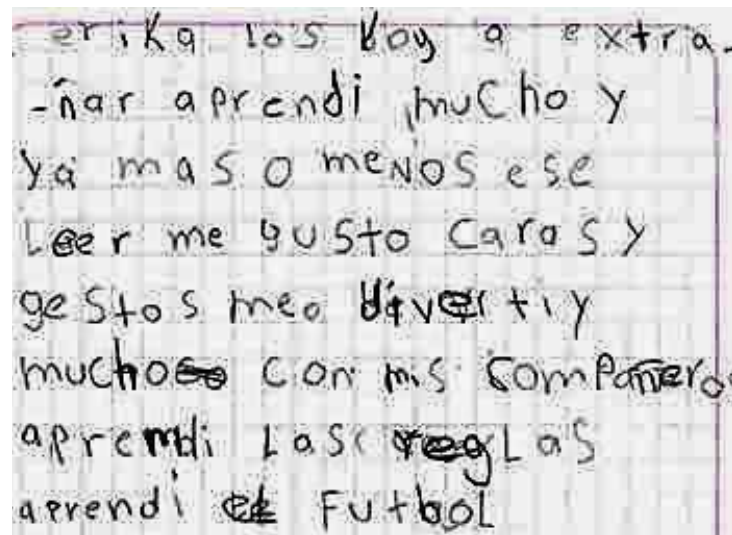 erika los boy a extra-
-ñar aprendi mucho y
ya mas o menos ese
Leer me gusto caras y
gestos meo divertiy
mucho con mis compañeros
aprendi Las regLas
aprendi el FutboL